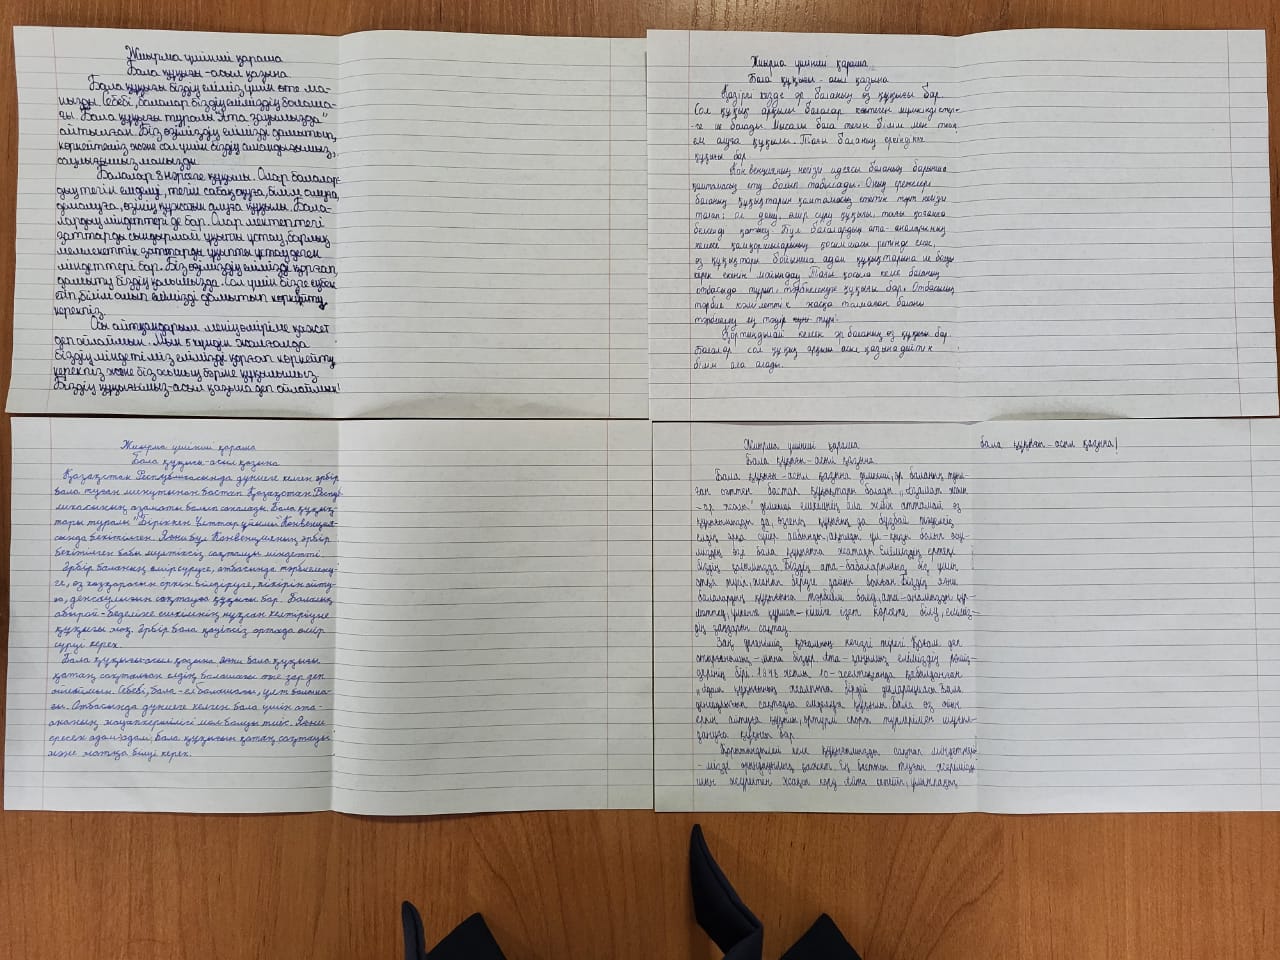 Жиырма үшінші қараша
Бала құқығы-асыл қазына
Бала құқығы біздің еліміз үшін өте ма-
ңызды. Себебі, балалар біздің еліміздің болаша-
ғы. Бала құқығы туралы "Ата заңымызда"
айтылған. Біз өзіміздің елімізді дамытып,
көркейтеміз және сол үшін біздің амандығымыз,
саулығымыз маңызды.
Балалар 8 нәрсеге құқылы. Олар балалар-
дың тегін емделуі, тегін сабақ оқуға, білім алуға,
демалуға, өзінің құжатын алуға құқылы. Бала-
лардың міндеттері де бар. Олар мектептегі
заттарды сындырмай ұқыпты ұстау, барлық
мемлекеттік заттарды ұқыпты ұстау деген
міндеттері бар. Біз өзіміздің елімізді қорғап,
дамыту біздің қолымызда. Сол үшін бізге еңбек
етіп, білім алып елімізді дамытып көркейту
керекпіз.
Осы айтқандарым менің өміріме қажет
деп ойлаймын.
біздің міндетіміз елімізді қорғап көркейту
керекпіз және біз
Біздің құқығымыз-асыл қазына деп ойлаймын!
Жиырма үшінші қараша
Бала құқығы - асыл қазына
Қазіргі кезде әр баланың өз құқығы бар.
Сол құқық арқылы балалар көптеген мүмкіндіктер-
ге ие болады. Мысалы бала тегін білім мен тегін
ем алуға құқылы. Тағы баланың ересндікке
құқығы бар.
Конвенцияның негізгі идеясы баланың барынша
қамтамасыз ету болып табылады. Оның ережелері
баланың құқықтарын қамтамасыз ететін төрт негізгі
талап: аман қалу, даму, өмір сүру құқығы, тағы қоғамға
белсенді қатысу. Бұл балалардың ата-аналарының
немесе қамқоршыларының қосымшасы ретінде емес,
өз құқықтары бойынша адам құқықтарына ие болуы
керек екенін мойындау. Тағы қосыла кеме баланың
отбасында тұрып, тәрбиелену құқығы бар. Отбасының
тәрбие кәмелеттік жасқа толмаған баланы
тәрбиелеу ең тәуір түрі.
Қортындылай келе әр баланың өз құқығы бар.
Балалар сол құқық арқылы асыл қазына дейтін
білім ала алады.
Жиырма үшінші қараша
Бала құқығы-асыл қазына
Қазақстан Республикасында дүниеге келген әрбір
бала туған минутынан бастап Қазақстан Респуб-
ликасының азаматы болып саналады. Бала құқық-
тары туралы "Біріккен Ұлттар ұйымы Конвенция-
сында бекітілген. Яғни бұл Конвенцияның әрбір
бекітілген бабы мүлтіксіз сақталуы міндетті.
Әрбір баланың өмір сүруге, отбасында тәрбиелену-
ге, өз көзқарасын еркін білдіруге, пікірін айту-
ға, денсаулығын сақтауға құқығы бар. Баланың
абырой-беделіне ешкімнің нұқсан келтіруіне
құқығы жоқ. Әрбір бала қауіпсіз ортада өмір
сүруі керек.
Бала құқығы-асыл қазына яғни бала құқығы
қатаң сақталған елдің болашағы зор деп
ойлаймын. Себебі, бала - ел болашағы, ұлт болаша-
ғы. Отбасында дүниеге келген бала үшін ата-
ананың жауапкершілігі мол болуы тиіс. Яғни
ересек адам-адам, бала құқығын қатаң сақтауы
және жатқа білуі керек.
Жиырма үшінші қараша
Бала құқығы - асыл қазына
Бала құқығы-асыл қазына демекші, әр баланың туы-
ған сәттен бастап құқықтары болады. "Адамат жолы
-ар жолы" демекші ешкімнің ала жібін аттамай өз
құқығымызды да, өзгенің құқығын да бұзбай
елдің алға сүйер азаматы, ақылды ұл-қызы болып өсу-
іміздің өзі бала құқығына жатады. Еліміздің ертеңі
біздің қолымызда. Біздің ата-бабаларымыз біз үшін
отқа түсіп, жанын беруге дайын болған. Біздің яғни
балалардың құқығына тәрбиелі болу, ата-анамызды құр-
меттеу, үлкенге құрмет-кішіге ізет көрсете білу, елімі-
здің заңдарын сақтау.
Заң үстемдігі қоғамның негізгі тірегі. Қоғам деп
отырғанымыз-мына біздер. Ата-заңымыз еліміздің рәміз-
дерінің бірі. 1948 жылы 10-желтоқсанда қабылданған
"Адам құқығының жалпыға бірдей декларациясы". Бала
денсаулығын сақтауға емделуге құқылы. Бала өз ойын
еркін айтуға құқылы, әртүрлі спорт түрлерімен шұғыл-
дануға құқығы бар.
Қорытындылай келе құқығымызды сақтап міндеттері-
-мізді орындауымыз қажет. Ең бастысы туған жерімізді
шын жүректен жақсы көру. Айта кетейін, ұмытпаңыз
бала құқығы - асыл қазына!